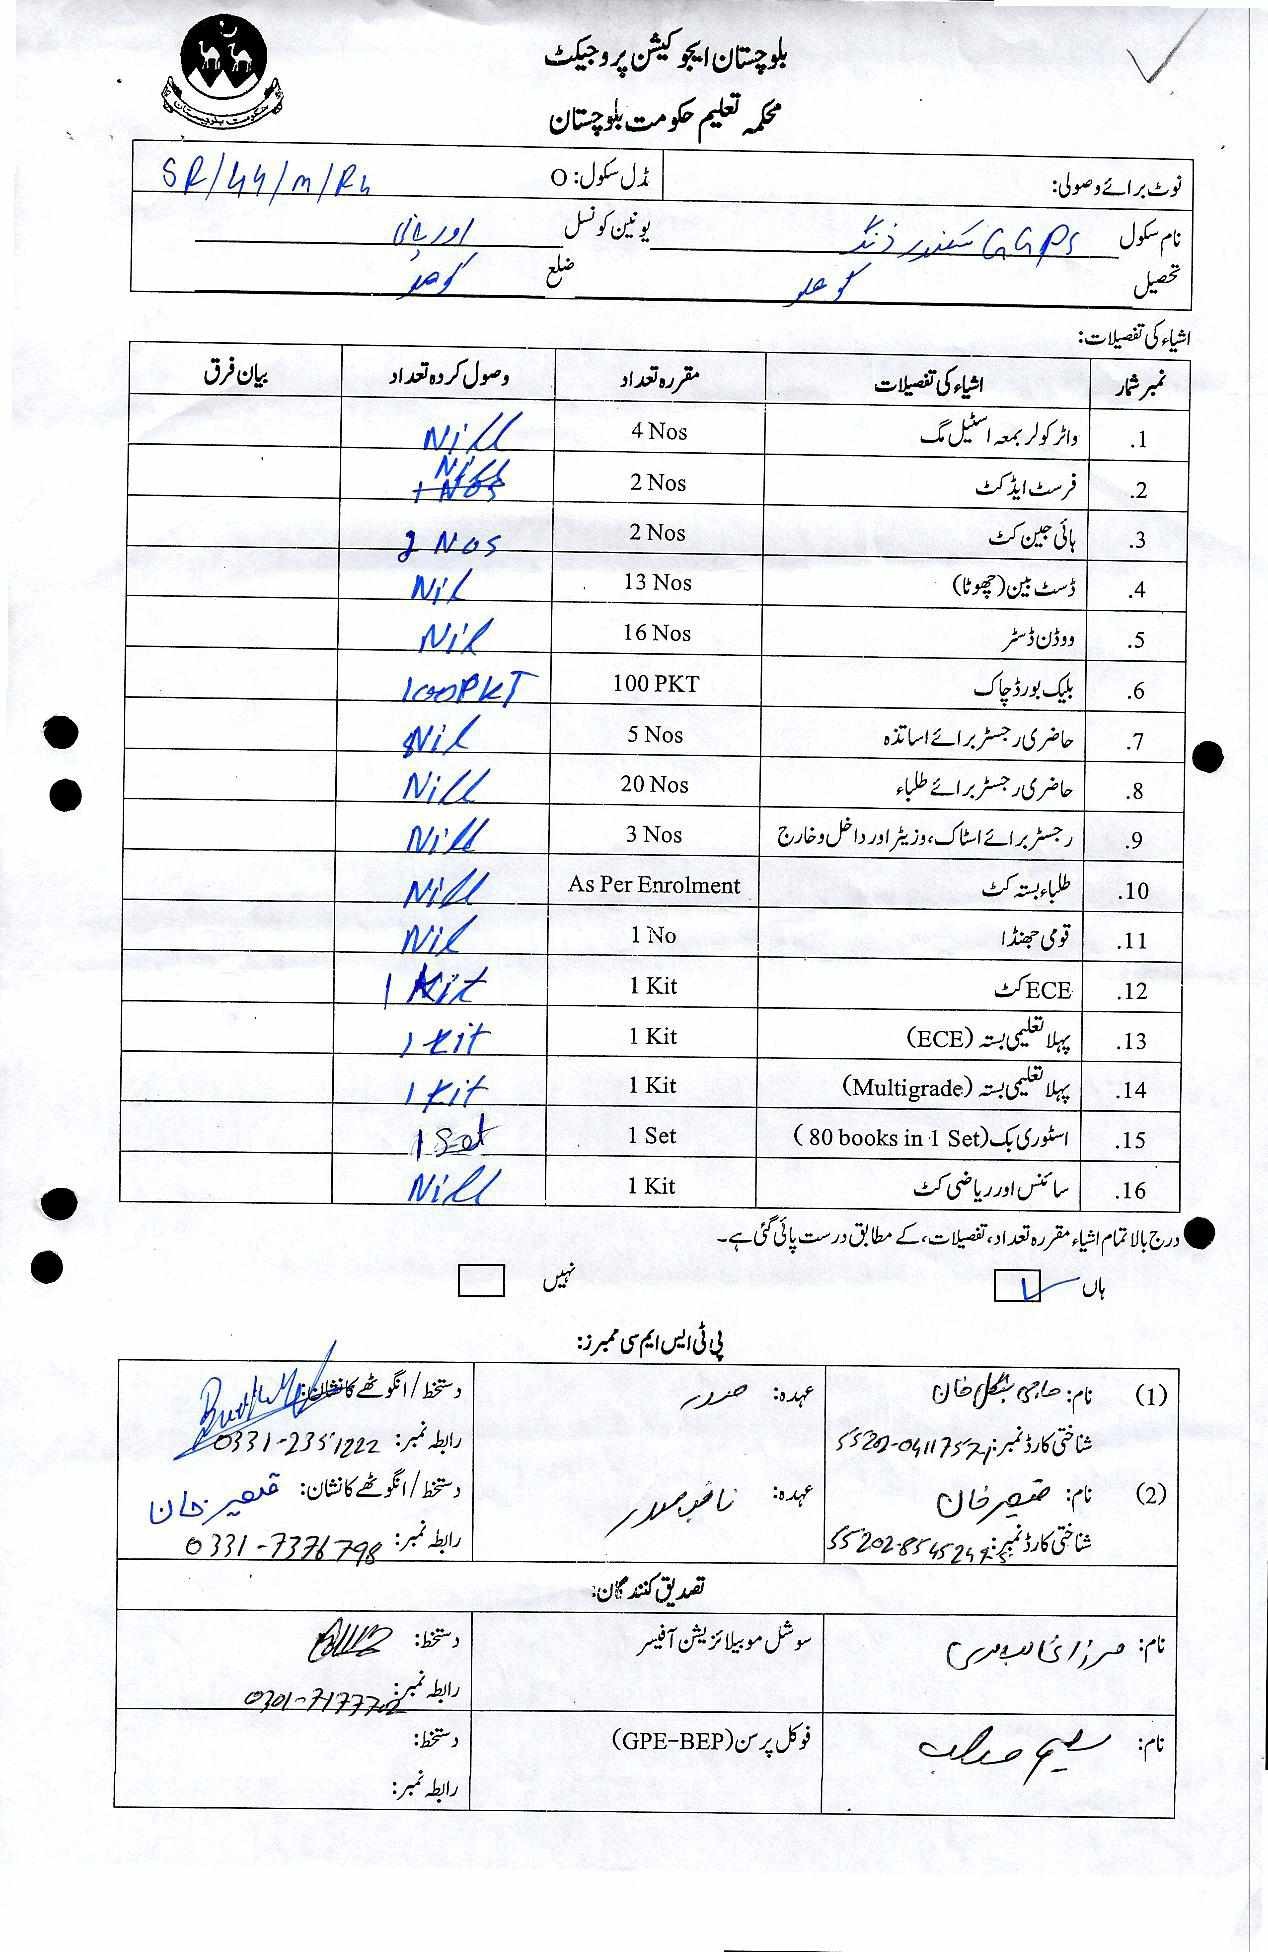 بلوچستان ایجوکیشن پروجیکٹ
محکمہ تعلیم حکومت بلوچستان
حکومت بلوچستان
نوٹ برائے وصولی: مڈل سکول: O SR/44/m/Rh
نام سکول GGPS سکندر یونین کونسل
تحصیل کوہلو ضلع کوہلو
اشیاء کی تفصیلات:
نمبر شمار اشیاء کی تفصیلات مقررہ تعداد وصول کردہ تعداد بیان فرق
1. واٹر کولر بمعہ اسٹیل مگ 4 Nos Nill
2. فرسٹ ایڈ کٹ 2 Nos Nill 1 Nos
3. ہائی جین کٹ 2 Nos 2 Nos
4. ڈسٹ بین (چھوٹا) 13 Nos Nil
5. ووڈن ڈسٹر 16 Nos Nil
6. بلیک بورڈ چاک 100 PKT 100 PKT
7. حاضری رجسٹر برائے اساتذہ 5 Nos Nil
8. حاضری رجسٹر برائے طلباء 20 Nos Nill
9. رجسٹر برائے اسٹاک، وزیٹر اور داخل و خارج 3 Nos Nill
10. طلباء بستہ کٹ As Per Enrolment Nill
11. قومی جھنڈا 1 No Nil
12. ECE کٹ 1 Kit 1 Kit
13. پہلا تعلیمی بستہ (ECE) 1 Kit 1 Kit
14. پہلا تعلیمی بستہ (Multigrade) 1 Kit 1 Kit
15. اسٹوری بک (80 books in 1 Set) 1 Set 1 Set
16. سائنس اور ریاضی کٹ 1 Kit Nill
درج بالا تمام اشیاء مقررہ تعداد، تفصیلات، کے مطابق درست پائی گئی ہے۔
ہاں نہیں
پی ٹی ایس ایم سی ممبرز:
(1) نام: حاجی خان عہدہ: صدر دستخط/انگوٹھے کا نشان:
شناختی کارڈ نمبر: رابطہ نمبر: 0331-2351222
(2) نام: قیصر خان عہدہ: نائب صدر دستخط/انگوٹھے کا نشان: قیصر خان
شناختی کارڈ نمبر: رابطہ نمبر: 0331-7376798
تصدیق کنندگان:
نام: سوشل موبیلائزیشن آفیسر دستخط:
رابطہ نمبر: 0301-7177702
نام: سلیم فوکل پرسن (GPE-BEP) دستخط:
رابطہ نمبر: